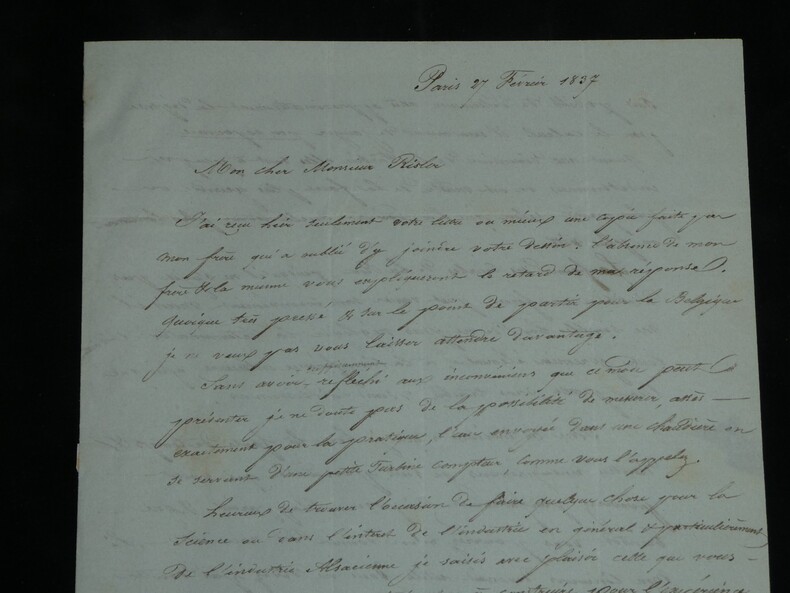 Paris 27 Février 1837
Mon cher Monsieur Risler
J'ai reçu hier seulement votre lettre ou mieux une copie faite par
mon frère qui a oublié d'y joindre votre dessin. l'absence de mon
frère & la mienne vous expliqueront le retard de ma réponse.
quoique très pressé & sur le point de partir pour la Belgique
je ne veux pas vous laisser attendre davantage.
suffisamment
Sans avoir réfléchi aux inconvéniens que ce mon peut
présenter je ne doute pas de la possibilité de mesurer, assès
exactement pour la pratique, l'air envoyé dans une chaudière en
se servant d'une petite Turbine compteur comme vous l'appelez.
heureux de trouver l'occasion de faire quelque chose pour la
Science ou dans l'intérêt de l'industrie en général & particulièrement
de l'industrie Alsacienne je saisis avec plaisir celle que vous
construire pour l'expérience